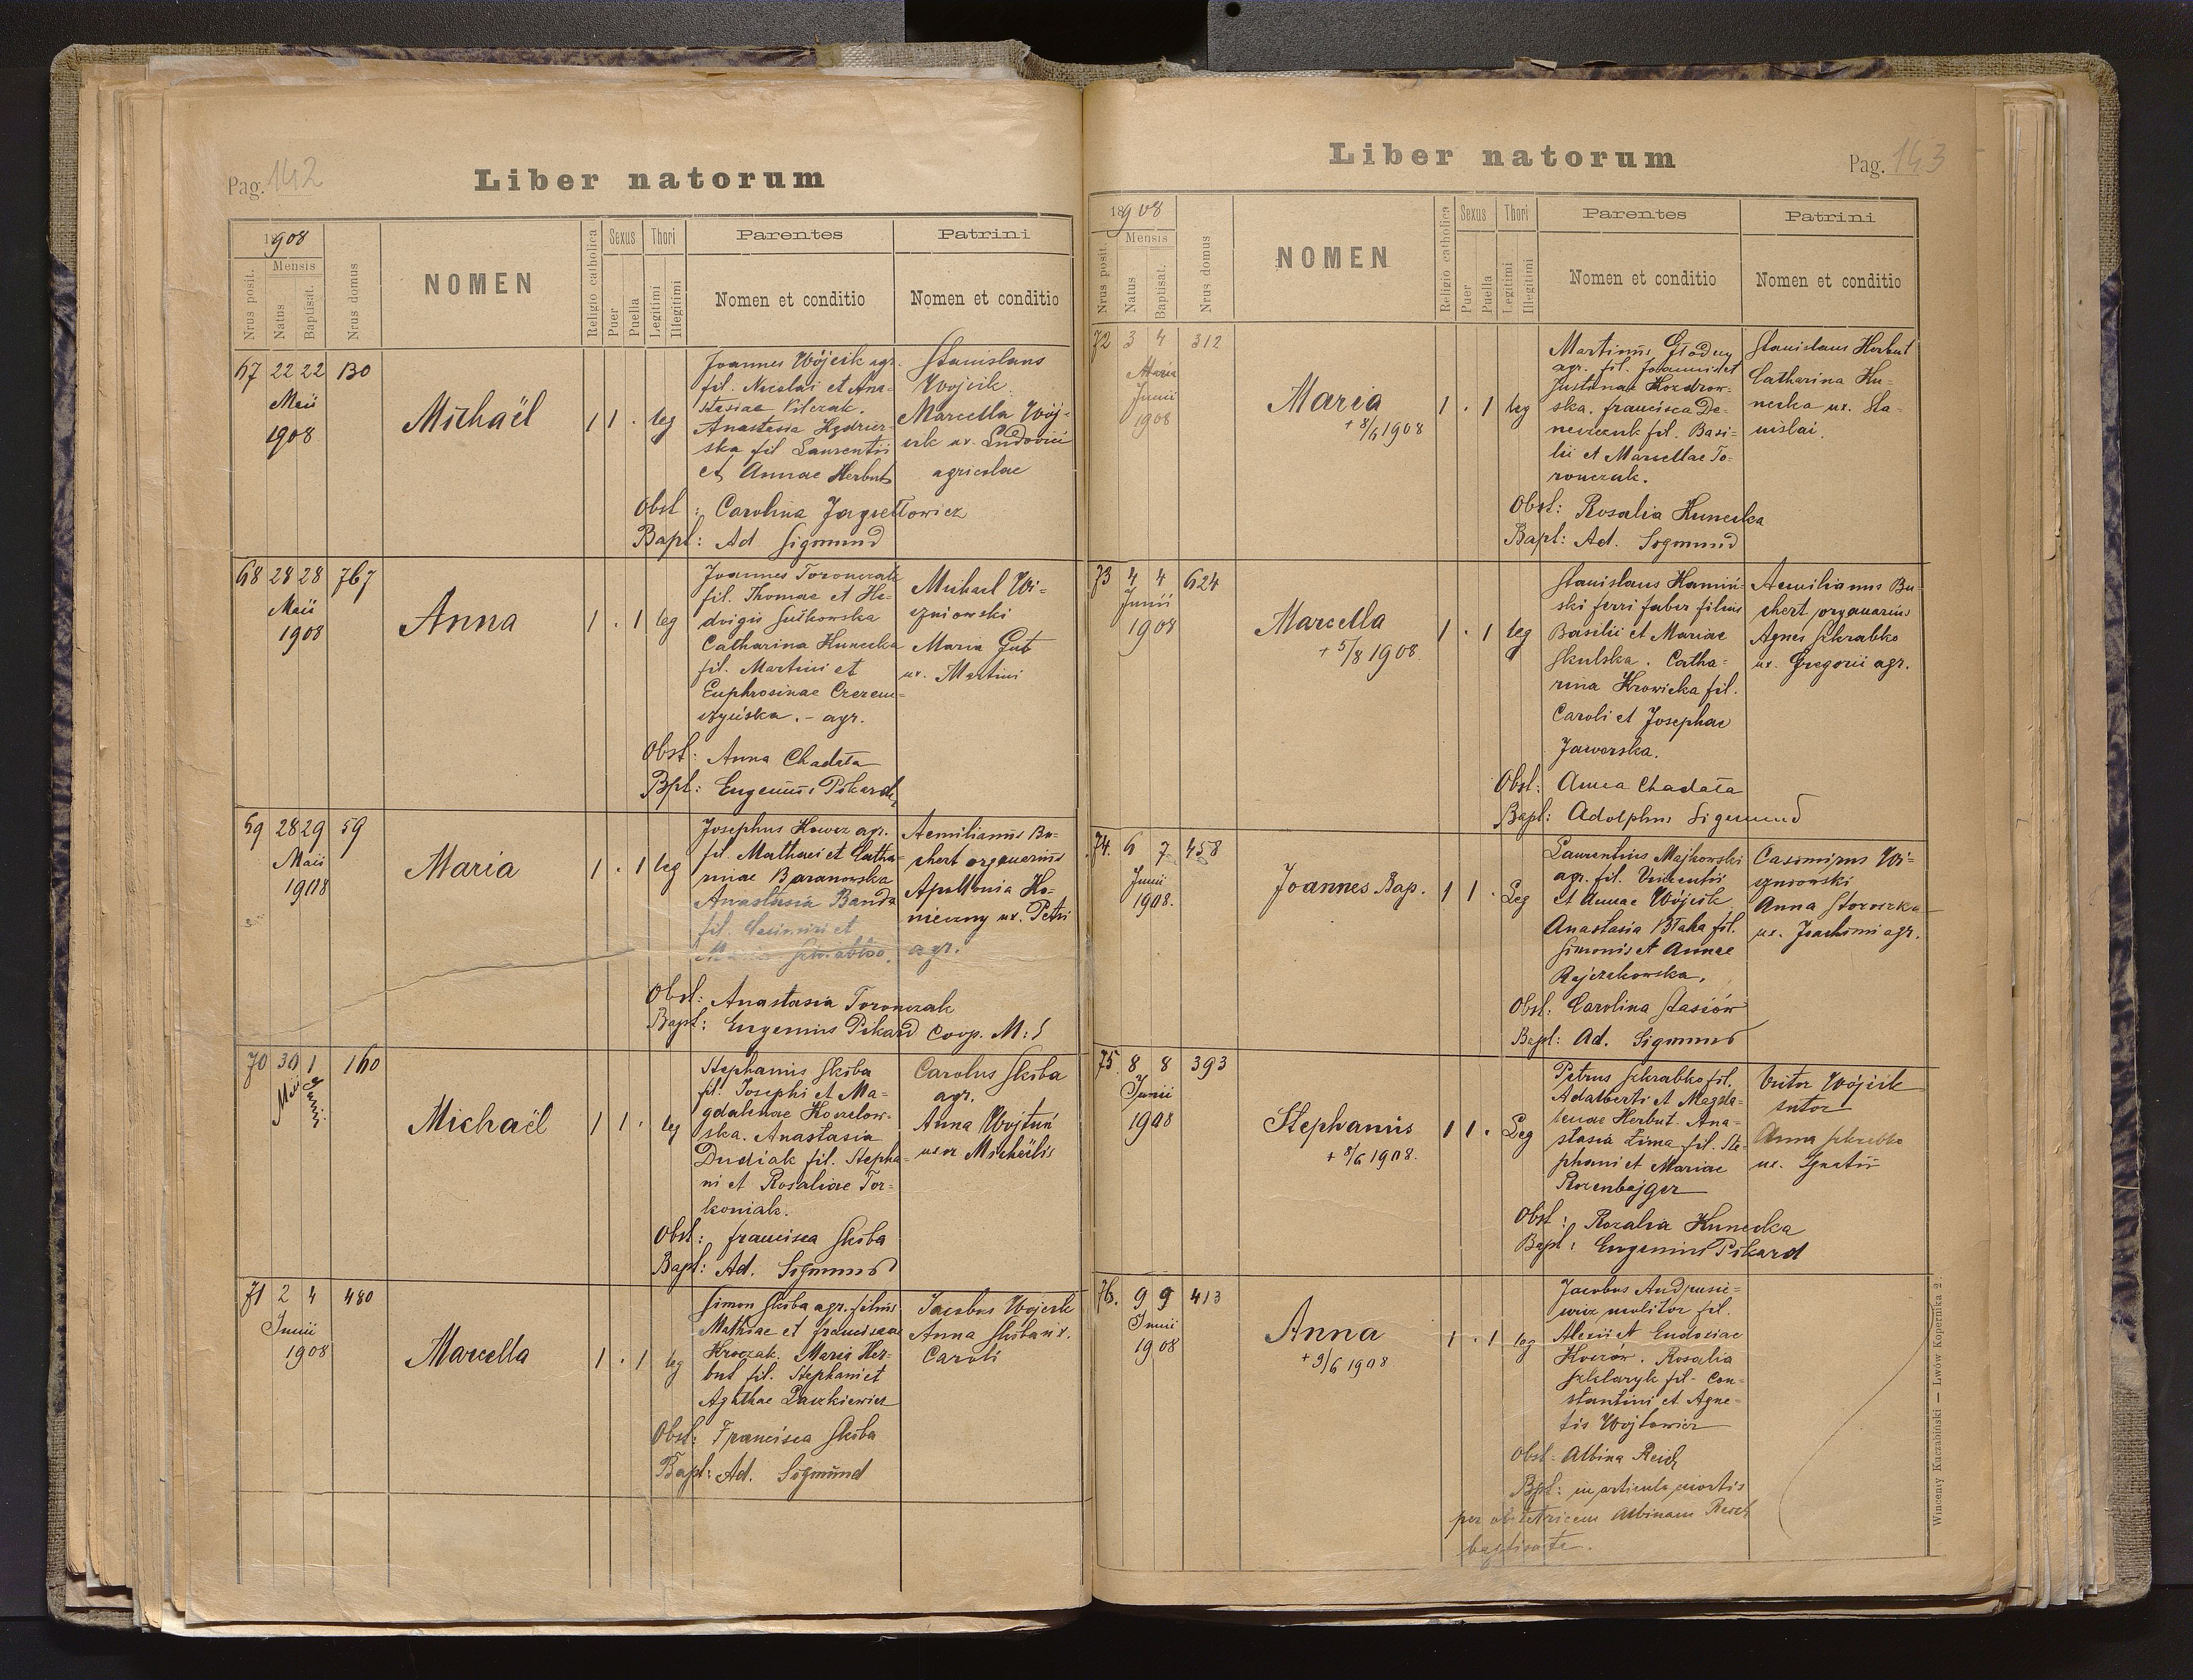 Pag. 142
Liber natorum
1908
Mensis
Nrus posit.
Natus
Baptisat.
Nrus domus
NOMEN
Religio catholica
Sexus
Puer
Puella
Thori
Legitimi
Illegitimi
Parentes
Nomen et conditio
Patrini
Nomen et conditio
67 22 22 130
Maii
1908
Michaël
1 1 . leg
Joannes Wójcik agr.
fil. Nicolai et Ana-
stasiae Vilczak.
Anastasia
ska fil Laurentii
et Annae Herbut
Stanislaus
Wójcik
Marcella Wój-
cik ux. Ludovici
agricolae
Obst: Carolina Jagiełłowicz
Bapt: Ad Sigmund
68 28 28 767
Maii
1908
Anna
1 . 1 leg
Joannes Toronczak
fil. Thomae et He-
dvigis Sułkowska
Catharina Kunecka
fil. Martini et
Euphrosinae Czerem-
szyńska. - agr.
Michael Wi-
szniowski
Maria Gut
ux. Martini
Obst: Anna Chadała
Bpt: Eugenius Pikard
69 28 29 59
Maii
1908
Maria
1 . 1 leg
Josephus Kowcz agr.
fil. Mathaei et Catha-
rinae Baranowska
Anastasia Banda
fil. Casimiri et
Maria Szkrabko.
Aemilianus Bu-
chert organarius
Apollonia Ko-
nieczny ux. Petri
agr.
Obst: Anastasia Toronczak
Bapt: Eugenius Pikard Coop. M:S
70 30 1 160
Maii Junii
Michaël
1 1 . leg
Stephanus Skiba
fil. Josephi et Ma-
gdalenae Koczelow-
ska. Anastasia
Dudiak fil. Stepha-
ni et Rosaliae Tor-
koniak.
Carolus Skiba
agr.
Anna Wojtuń
uxor Michaëlis
Obst: francisca Skiba
Bapt: Ad. Sigmund
71 2 4 480
Junii
1908
Marcella
1 . 1 leg
Simon Skiba agr. filius
Mathiae et franciscae
Kroczak. Maria Her-
but fil. Stephani et
Agathae Laszkiewicz
Jacobus Wojcik
Anna Skiba ux.
Caroli
Obst: Francisca Skiba
Bapt: Ad. Sigmund
Liber natorum
Pag. 143
1908
Mensis
Nrus posit.
Natus
Baptisat.
Nrus domus
NOMEN
Religio catholica
Sexus
Puer
Puella
Thori
Legitimi
Illegitimi
Parentes
Nomen et conditio
Patrini
Nomen et conditio
72 3 4 312
Maii
Junii
1908
Maria
+ 8/6 1908
1 . 1 leg
Martinus Głodny
agr. fil. Joannis et
Justinae Kozdrow-
ska. francisca De-
neszczuk fil. Basi-
lii et Marcellae To-
ronczak.
Stanislaus Herbut
Catharina Ku-
necka ux. Sta-
nislai.
Obst: Rosalia Kunecka
Bapt: Ad. Sigmund
73 4 4 624
Junii
1908
Marcella
+ 5/8 1908.
1 . 1 leg
Stanislaus Kamiń-
ski ferri faber filius
Basilii et Mariae
Skulska. Catha-
rina Krowicka fil.
Caroli et Josephae
Jaworska.
Aemilianus Bu-
chert organarius
Agnes Szkrabko
ux. Gregorii agr.
Obst: Anna Chadała
Bapt: Adolphus Sigmund
74. 6 7 458
Junii
1908.
Joannes Bap.
1 1 . Leg
Laurentius Majkowski
agr. fil. Vincentii
et Annae Wójcik
Anastasia Błaha fil.
Simonis et Annae
Rajczakowska.
Casimirus Wi-
szniowski
Anna Storoszka
ux. Joachimi agr.
Obst: Carolina Stasiów
Bapt: Ad. Sigmund
75 8 8 393
Junii
1908
Stephanus
+ 8/6 1908.
1 1 . Leg
Petrus Szkrabko fil.
Adalberti et Magda-
lenae Herbut. Ana-
stasia Zima fil. Ste-
phani et Mariae
Rozenbajger
Victor Wójcik
sutor
Anna Szkrabko
ux. Ignatii
Obst: Rozalia Kunecka
Bapt: Eugenius Pikard
76. 9 9 413
Junii
1908
Anna
+ 9/6 1908
1 . 1 leg
Jacobus Andrusie-
wicz molitor fil.
Alexii et Eudosiae
Koczów. Rosalia
Szklaryk fil. Con-
stantini et Agne-
tis Wojtowicz
Obst. Albina Reich
Bpt: in articulo mortis
per obstetricem Albinam Reich
baptisata.
Wincenty Kuczabiński — Lwów Kopernika 2.